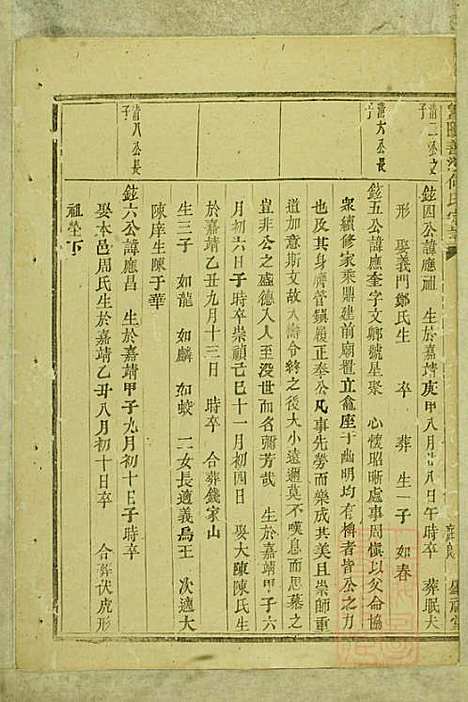 清二公次子
鉉四公諱應祖 生於嘉靖庚申八月廿八日午時卒 葬眠犬
形 娶義門鄭氏生 卒 葬 生一子 如春
清大公長子
鉉五公諱應奎字文郷號星聚 心懷昭晰處事周慎以父命協
衆續修家乘鼎建前廟置立龕座于幽明均有禆者皆公之力
也及其身膺管鎭履正奉公凡事先勞而樂成其美且崇師重
道加意斯文故人譸令終之後大小遠邇莫不嘆息而思慕之
豈非公之盛德入人至没世而名彌芳哉 生於嘉靖甲子六
月初六日子時卒崇禎己巳十一月初四日 娶大陳陳氏生
於嘉靖乙丑九月十三日 時卒 合葬錢家山
生三子 如龍 如麟 如蛟 二女長適義烏王 次適大
陳庠生陳于華
清八公長子
鉉六公諱應昌 生於嘉靖甲子九月初十日子時卒
娶本邑周氏生於嘉靖乙丑八月初十日卒 合葬伏虎形
祖塋下